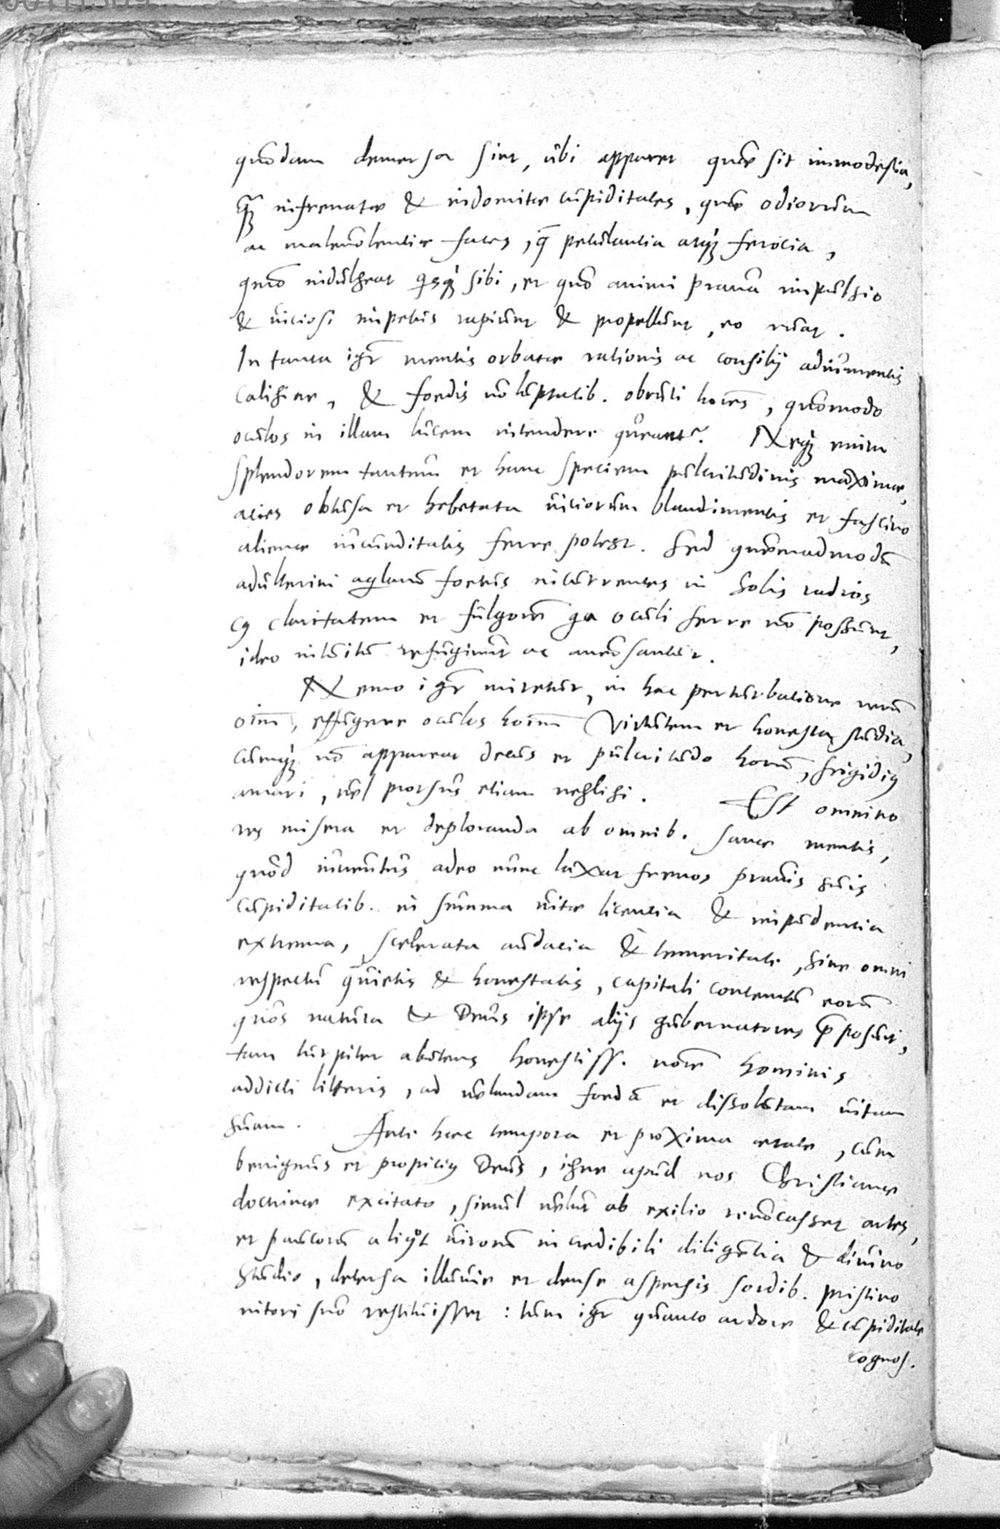 quodam demersa sint, ubi apparet quae sit immodestia,
infrenatae & indomitae cupiditates, quae odiorum
ac malevolentiae faces, petulantia atq; ferocia,
quo indulgeat quisq; sibi, et quo animi prava impulsio
& viciosi impetus rapiunt & propellunt, eo ruat.
In tanta igr mentis orbatae rationis ac consilij adiumentis
caligine, & foedis voluptatib. obruti hoies, quomodo
oculos in illam lucem intendere queant? Neq; enim
splendorem tantum et hanc speciem pulcritudinis maximae,
acies obtusa et hebetata viciorum blandimentis et fascino
alienae iucunditatis ferre potest. Sed quemadmodu
adulterini aqlarum foetus incurrentes in Solis radios
claritatem et fulgorem oculi ferre no possunt,
ideo intuitu refugiunt ac aversantur.
Nemo igr miretur, in hac perturbatione reru
oim, effugere oculos hoim virtutem et honesta studia,
cumq; no appareat decus et pulcritudo horu, frigidius
amari, vel prorsus etiam negligi. Est omnino
res misera et deploranda ab omnib. sanae mentis,
quod iuventus adeo nunc laxat frenos pravis suis
cupiditatib. in summa vitae licentia & impudentia
extrema, scelerata audacia & temeritate, sine omni
respectu quietis & honestatis, capitali contemtu eorum
quos natura & Deus ipse alijs gubernatores pposuit,
tam turpiter abutens honestiss. noie hominis
addicti litteris, ad velandam foeda et dissolutam vitam
suam. Ante haec tempora et proxima aetate, cum
benignus et propicius Deus, igne apud nos Christianae
doctrinae excitato, simul velut ab exilio revocasset artes,
et paucoru aliqt virorum incredibili diligentia & divino
studio, detersa illuvie et dense aspersis sordib. pristino
nitori suo restituisset: tum igr quanto ardore & cupiditate
cognos.